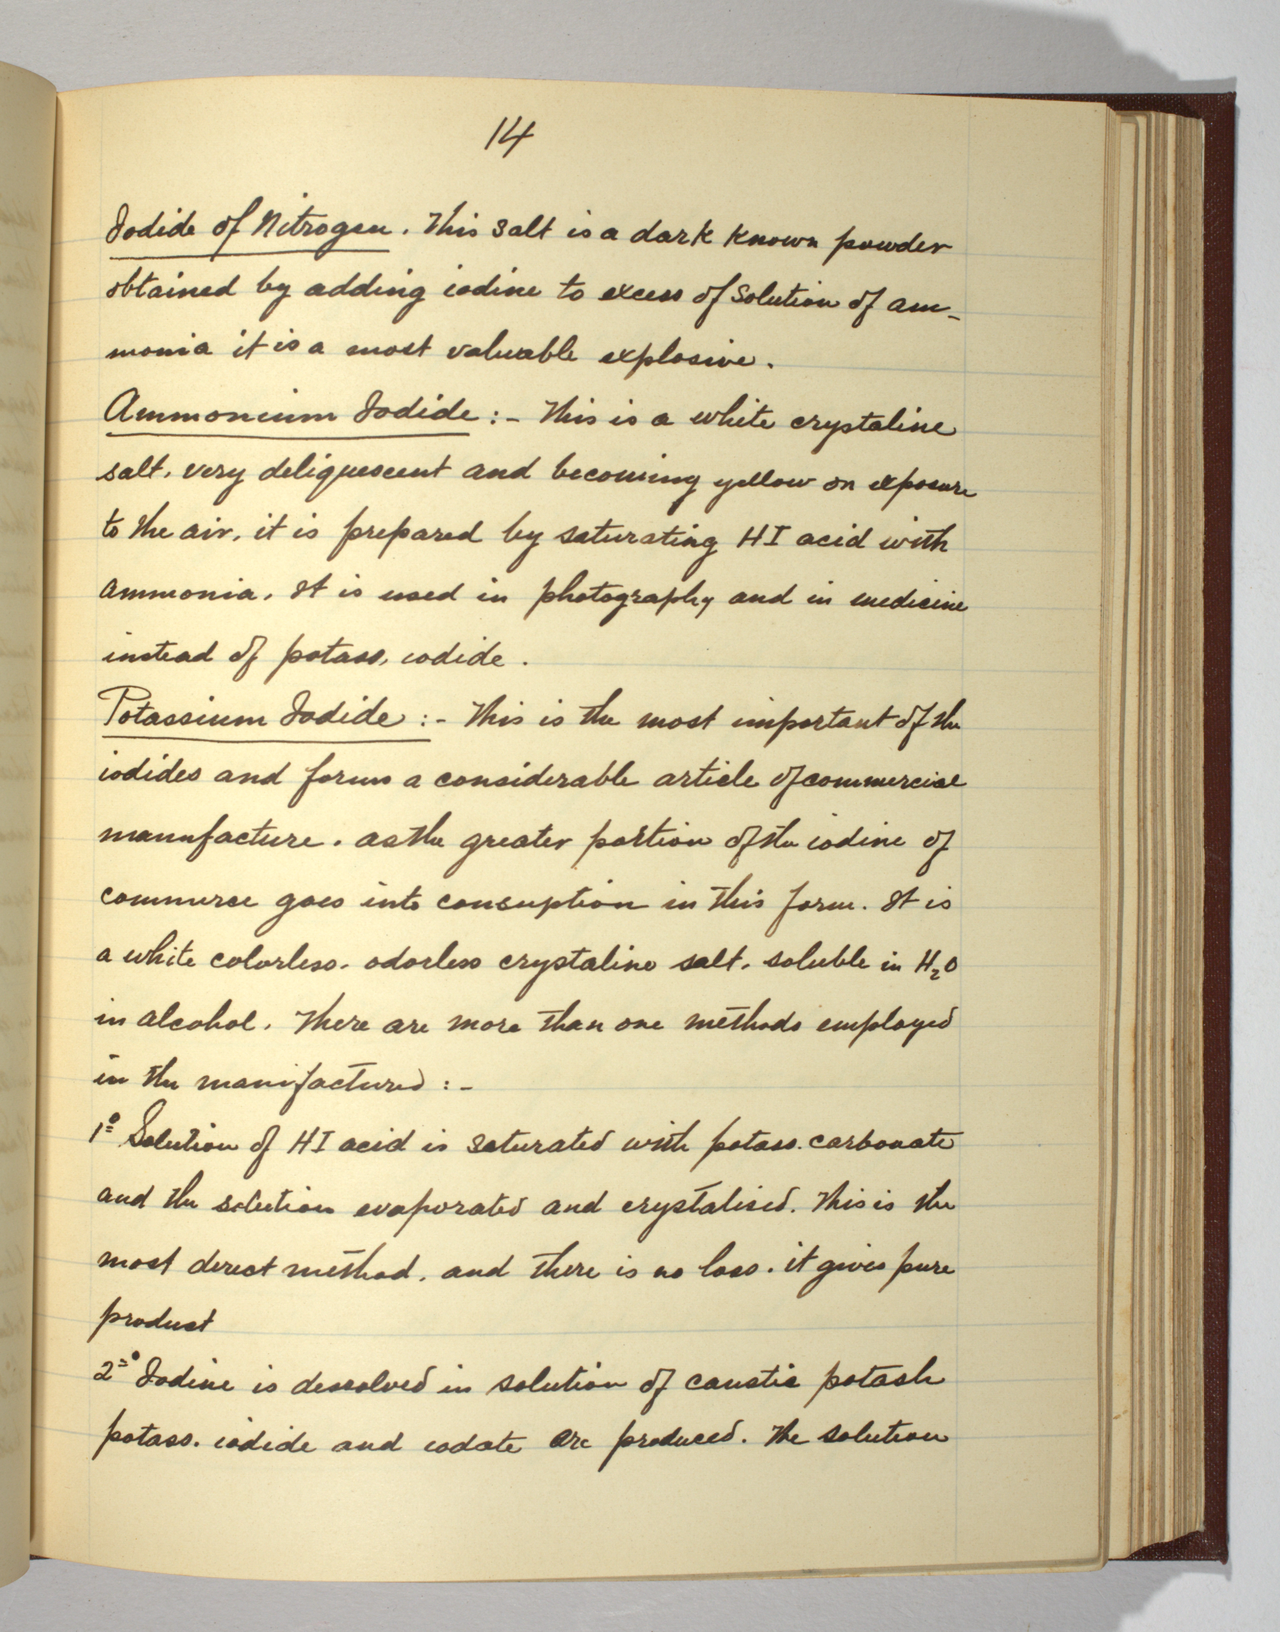 14
Iodide of Nitrogen. This salt is a dark known powder
obtained by adding iodine to excess of solution of am-
monia it is a most valuable explosive.
Ammonium Iodide :- This is a white crystaline
salt, very deliquescent and becoming yellow on exposure
to the air, it is prepared by saturating HI acid with
ammonia. It is used in photography and in medicine
instead of potass. iodide.
Potassium Iodide :- This is the most important of the
iodides and forms a considerable article of commercial
manufacture. as the greater portion of the iodine of
commerce goes into consuption in this form. It is
a white colorless. odorless crystaline salt. soluble in H₂O
in alcohol. There are more than one methods employed
in the manifactured :-
1º Solution of HI acid is saturated with potass. carbonate
and the solution evaporated and crystalised. This is the
most derect method. and there is no loss. it gives pure
product
2º Iodine is dessolved in solution of caustic potash
potass. iodide and iodate are produced. The solution